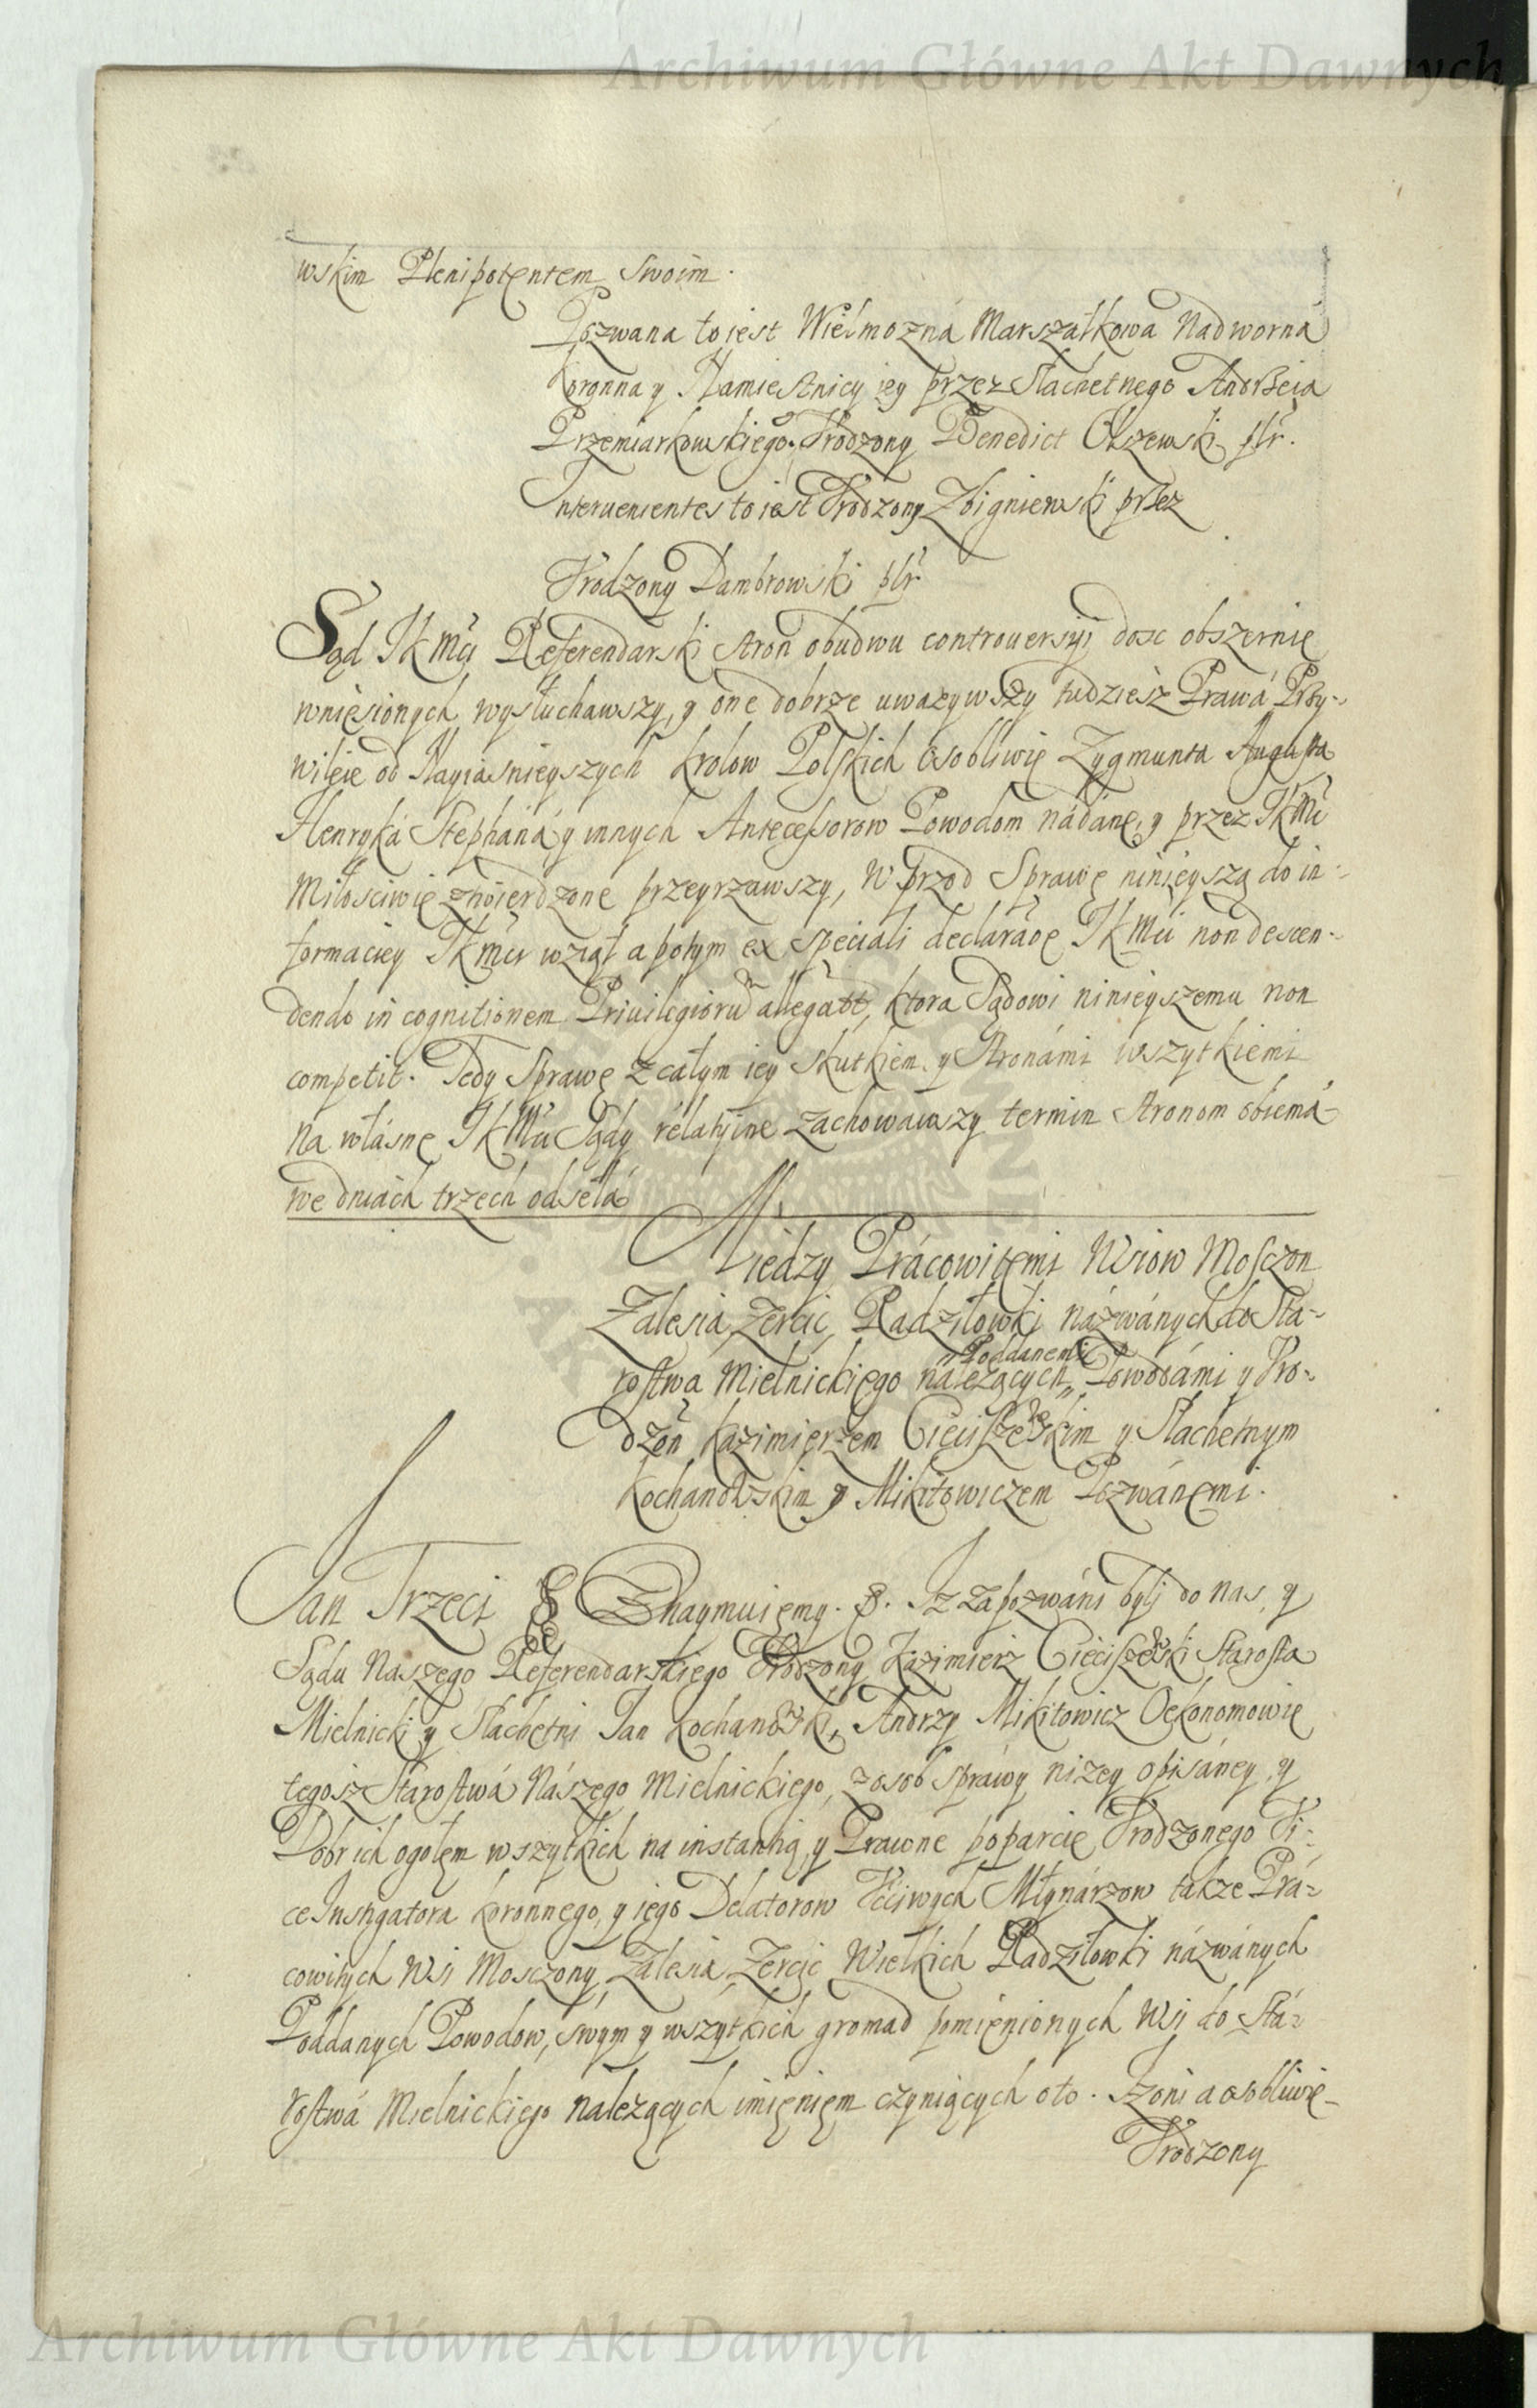 Archiwum Główne Akt Dawnych
wskim Plenipotentem Swoim.
Pozwana to iest Wielmozná Marszałkowa Nadworná
Koronna y Namiestnicy iey przez Slachetnego Andrzeia
Przemiarkowskiego. Vrodzony Benedict Olszewski plr.
Interuenientes to iest Vrodzony Zbigniewski przez
Vrodzony Dambrowski plr
Sąd JKMći Referendarski stron obudwu controuersyi dosc obszernie
wniesionych wysłuchawszy, y one dobrze uwazywszy tudziesz Prawá Przy-
wileie od Nayiasnieyszych Krolow Polskich osobliwie Zygmunta Augusta
Henryká Stephaná y innych Antecessorow Powodom nádáne, y przez JKMć
Miłosciwie ztwierdzone przeyrzawszy, W przod Sprawę ninieyszą do in-
formaciey JKMći wziął a potym ex speciali declaraoe JKMći non descen-
dendo in cognitionem Priuilegioru allegatt, ktora Sądowi ninieyszemu non
competit. Tedy Sprawę z całym iey skutkiem y Stronámi wszytkiemi
na własne JKMći Sądy relatyine zachowawszy termin stronom obiemá
we dniách trzech odseła
Miedzy Prácowitemi Wsiow Mosczon
Zalesia, Zercic, Radziłowki názwánych do Sta-
rostwa Mielnickiego nalezących „Poddanemi„ Powodámi y Vro-
dzoñ Kazimierzem Cieciszewskim y Slachetnym
Kochanowskim y Mikitowiczem Pozwánemi.
Jan Trzeci & Oznaymuiemy. &. Jz zapozwáni byli do nas, y
Sądu Naszego Referendarskiego Vrodzony Kazimierz Cieciszewski Starosta
Mielnicki y Slachetni Jan Kochanowski, Andrzy Mikitowicz Oekonomowie
tegosz Starostwá Nászego Mielnickiego, z osob spráwy nizey opisáney, y
Dobr ich ogołem wszytkich na instantią y Prawne poparcie Vrodzonego Vi-
ce Instigatora Koronnego, y iego Delatorow Vcciwych Młynárzow także Prá-
cowitych Wsi Mosczony Zalesia, Zercic Wielkich Radziłowki názwánych
Poddanych Powodow, swym y wszytkich gromad pomienionych Wsi do Stá-
rostwá Mielnickiego nalezących imieniem czyniących oto. Jz oni a osobliwie
Vrodzony
Archiwum Główne Akt Dawnych